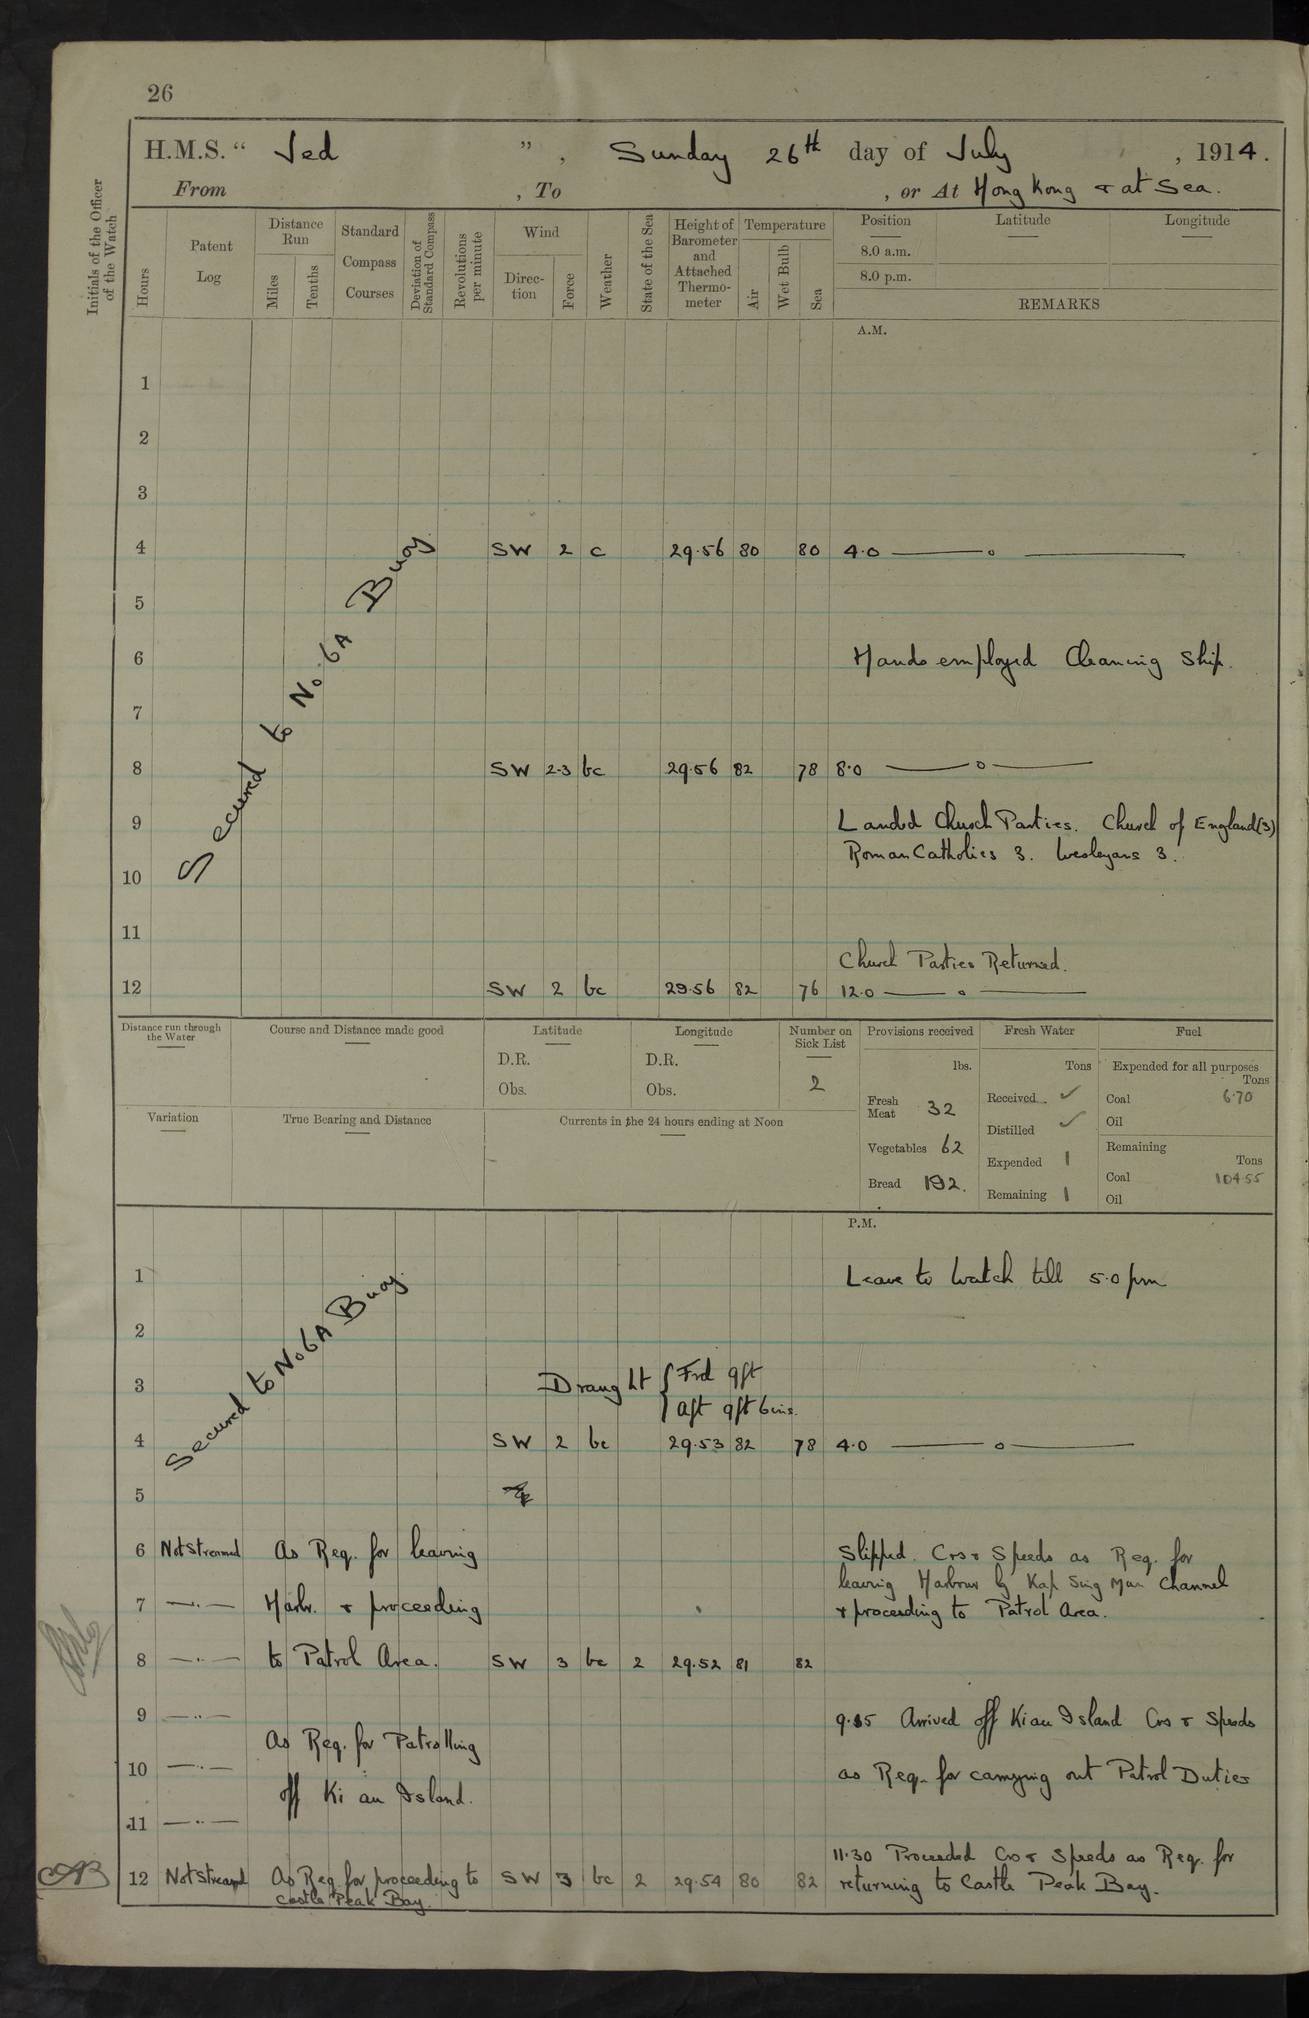 26
H.M.S. " Jed " , Sunday 26th day of July , 1914.
From , To , or At Hong Kong & at Sea.
Initials of the Officer of the Watch
Hours
Patent Log
Distance Run
Miles
Tenths
Standard Compass Courses
Deviation of Standard Compass
Revolutions per minute
Wind
Direction
Force
Weather
State of the Sea
Height of Barometer and Attached Thermometer
Temperature
Air
Wet Bulb
Sea
Position
Latitude
Longitude
8.0 a.m.
8.0 p.m.
REMARKS
A.M.
1
2
3
4 SW 2 c 29.56 80 80 4.0 — o —
5
Secured to No. 6A Buoy
6 Hands employed Cleaning Ship.
7
8 SW 2.3 bc 29.56 82 78 8.0 — o —
9 Landed Church Parties. Church of England (3)
Roman Catholics 3. Wesleyans 3.
10
11
Church Parties Returned.
12 SW 2 bc 29.56 82 76 12.0 — o —
Distance run through the Water
Course and Distance made good
Latitude
D.R.
Obs.
Longitude
D.R.
Obs.
Number on Sick List
2
Provisions received
lbs.
Fresh Meat 32
Vegetables 62
Bread 192.
Fresh Water
Tons
Received ✓
Distilled ✓
Expended 1
Remaining 1
Fuel
Expended for all purposes
Tons
Coal 6.70
Oil
Remaining
Tons
Coal 104.55
Oil
Variation
True Bearing and Distance
Currents in the 24 hours ending at Noon
P.M.
1 Leave to Watch till 5.0 pm
2
Secured to No 6A Buoy.
3 Draught { Frd 9ft
Aft 9ft 6ins.
4 SW 2 bc 29.53 82 78 4.0 — o —
5
6 Not Streamed As Req. for leaving Slipped. Cos & Speeds as Req. for
leaving Harbour by Kap Sing Mun Channel
7 — .. — Harbr. & proceeding & proceeding to Patrol Area.
8 — .. — to Patrol Area. SW 3 bc 2 29.52 81 82
9 — .. — 9.15 Arrived off Kiau Island Cos & Speeds
As Req. for Patrolling
10 — .. — as Req. for carrying out Patrol Duties
off Ki au Island.
11 — .. —
11.30 Proceeded Cos & Speeds as Req. for
12 Not Streamed As Req. for proceeding to SW 3 bc 2 29.54 80 82 returning to Castle Peak Bay.
Castle Peak Bay.